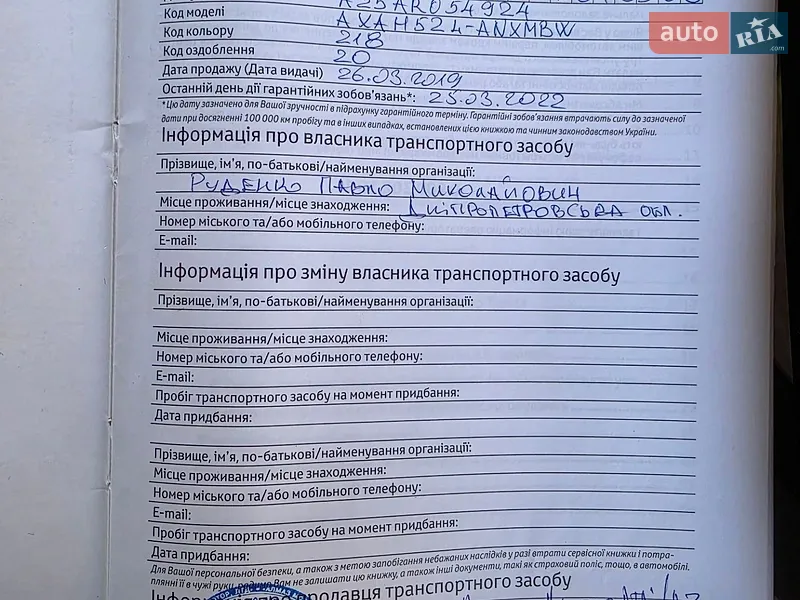 A25AR054924
Код моделі AXAH52L-ANXMBW
Код кольору 218
Код оздоблення 20
Дата продажу (Дата видачі) 26.03.2019
Останній день дії гарантійних зобов'язань*: 25.03.2022
*Цю дату зазначено для Вашої зручності в підрахунку гарантійного терміну. Гарантійні зобов'язання втрачають силу до зазначеної
дати при досягненні 100 000 км пробігу та в інших випадках, встановлених цією книжкою та чинним законодавством України.
Інформація про власника транспортного засобу
Прізвище, ім'я, по-батькові/найменування організації:
Руденко Павло Миколайович
Місце проживання/місце знаходження: Дніпропетровська обл.
Номер міського та/або мобільного телефону:
E-mail:
Інформація про зміну власника транспортного засобу
Прізвище, ім'я, по-батькові/найменування організації:
Місце проживання/місце знаходження:
Номер міського та/або мобільного телефону:
E-mail:
Пробіг транспортного засобу на момент придбання:
Дата придбання:
Прізвище, ім'я, по-батькові/найменування організації:
Місце проживання/місце знаходження:
Номер міського та/або мобільного телефону:
E-mail:
Пробіг транспортного засобу на момент придбання:
Дата придбання:
Для Вашої персональної безпеки, а також з метою запобігання небажаних наслідків у разі втрати сервісної книжки і потра-
пляння її в чужі руки, радимо Вам не залишати цю книжку, а також інші документи, такі як страховий поліс, тощо, в автомобілі.
Інформація про продавця транспортного засобу
auto RIA .com